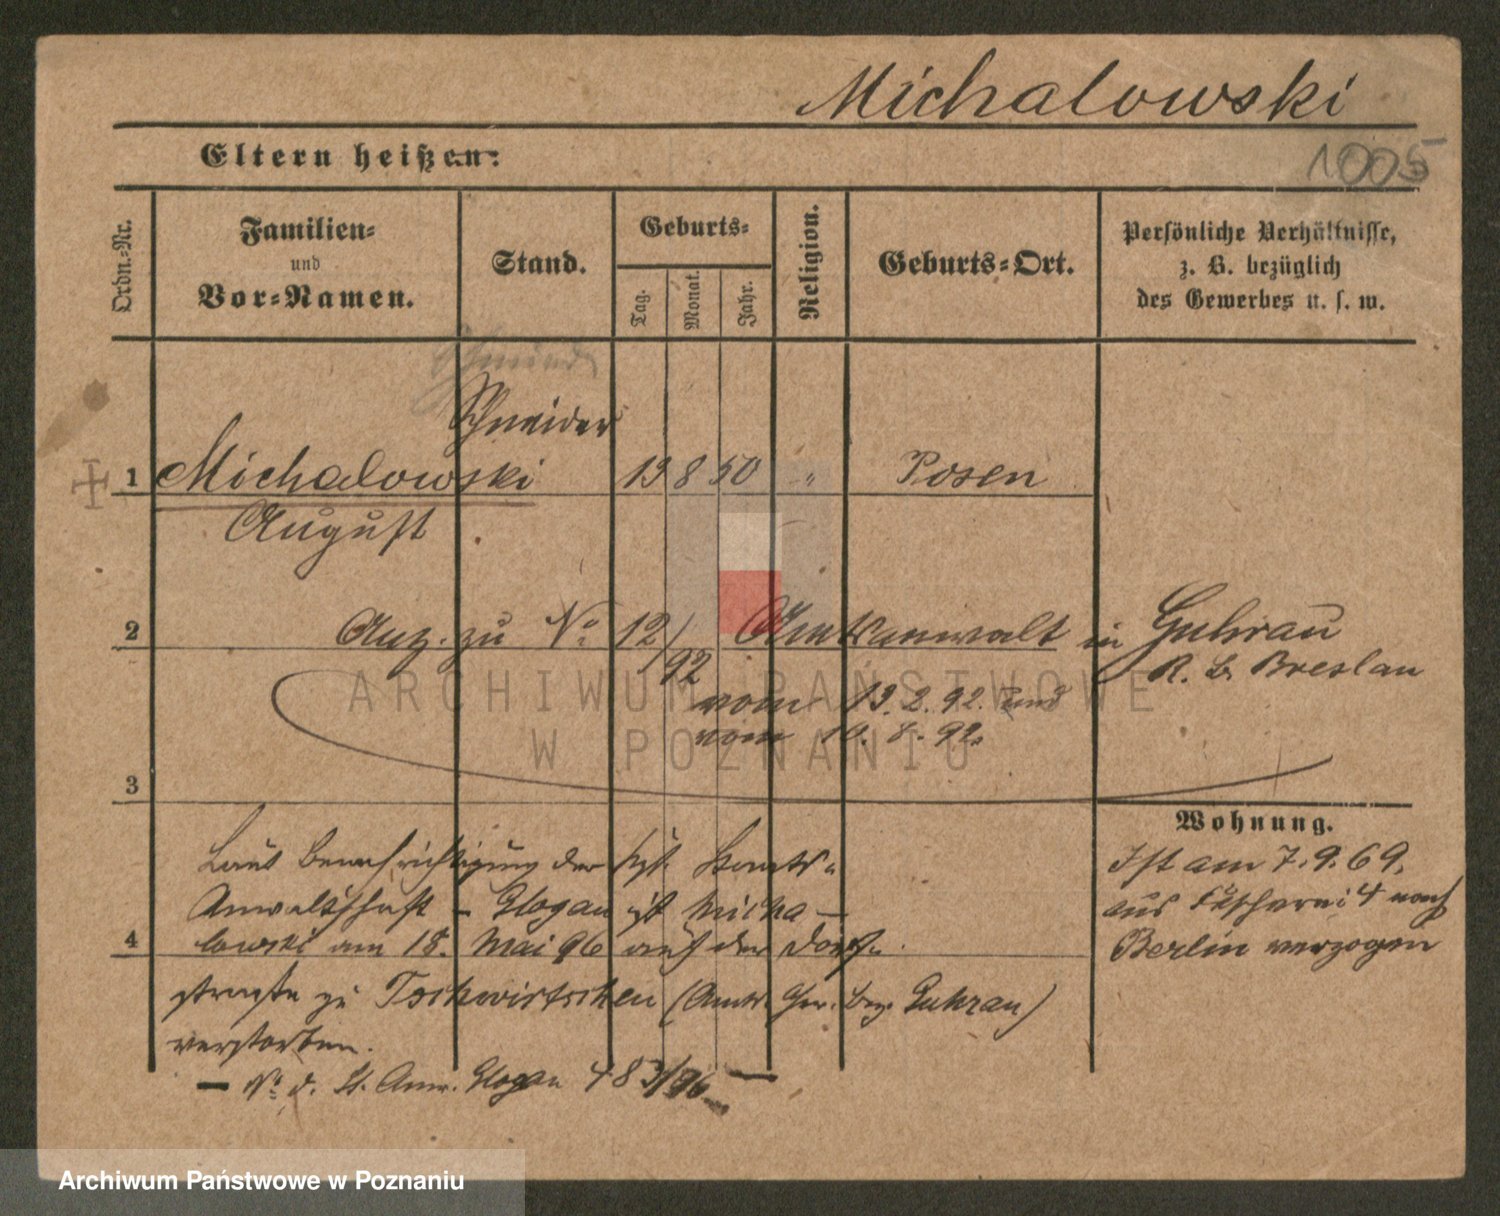 Michalowski
1005
Eltern heißen:
Ordn.-Nr.
Familien-
und
Vor-Namen.
Stand.
Geburts-
Tag.
Monat.
Jahr.
Religion.
Geburts-Ort.
Persönliche Verhältnisse,
z. B. bezüglich
des Gewerbes u. s. w.
Schneider
1 Michalowski 13 8 50 " Posen
August
2 Anz. zu No 12/92 Amtsanwalt in Guhrau
R. B. Breslau
vom 13.2.92. und
vom 10.8.92.
3
Wohnung.
Ist am 7.9.69.
aus Fischerei 4 nach
Berlin verzogen
Laut Benachrichtigung der Kgl. Staats-
Anwaltschaft - Glogau ist Micha-
4 lowski am 18. Mai 96 auf der Dorf-
straße zu Tschwirtschen (Amts. Ger. Bez. Guhrau)
verstorben.
- No d. St. Anw. Glogau 483/96 -
ARCHIWUM PAŃSTWOWE
W POZNANIU
Archiwum Państwowe w Poznaniu